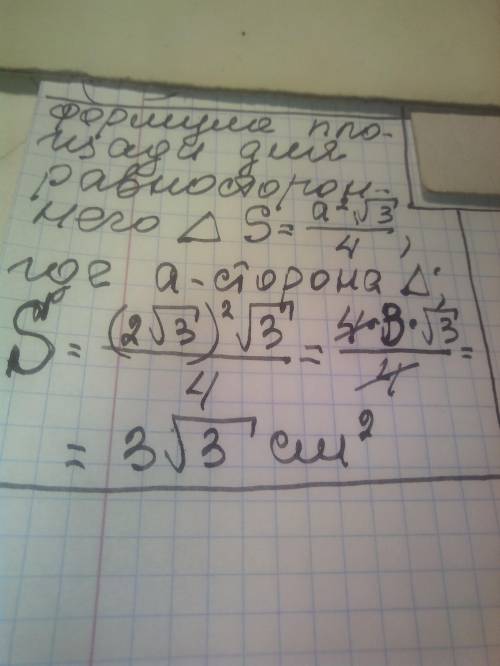 формула пло-
щади для
равносторон-
него Δ S = a²√3/4,
где a - сторона Δ;
S = (2√3)²√3/4 = 4·3·√3/4 =
= 3√3 см²